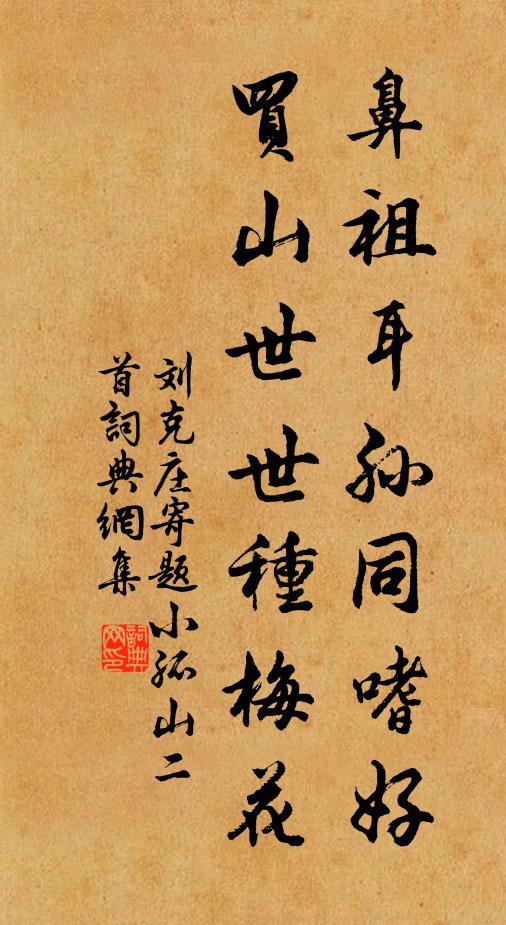 鼻祖耳孙同嗜好
買山世世種梅花
刘克庄寄题小孤山二
首詞典網集
詞典
网印